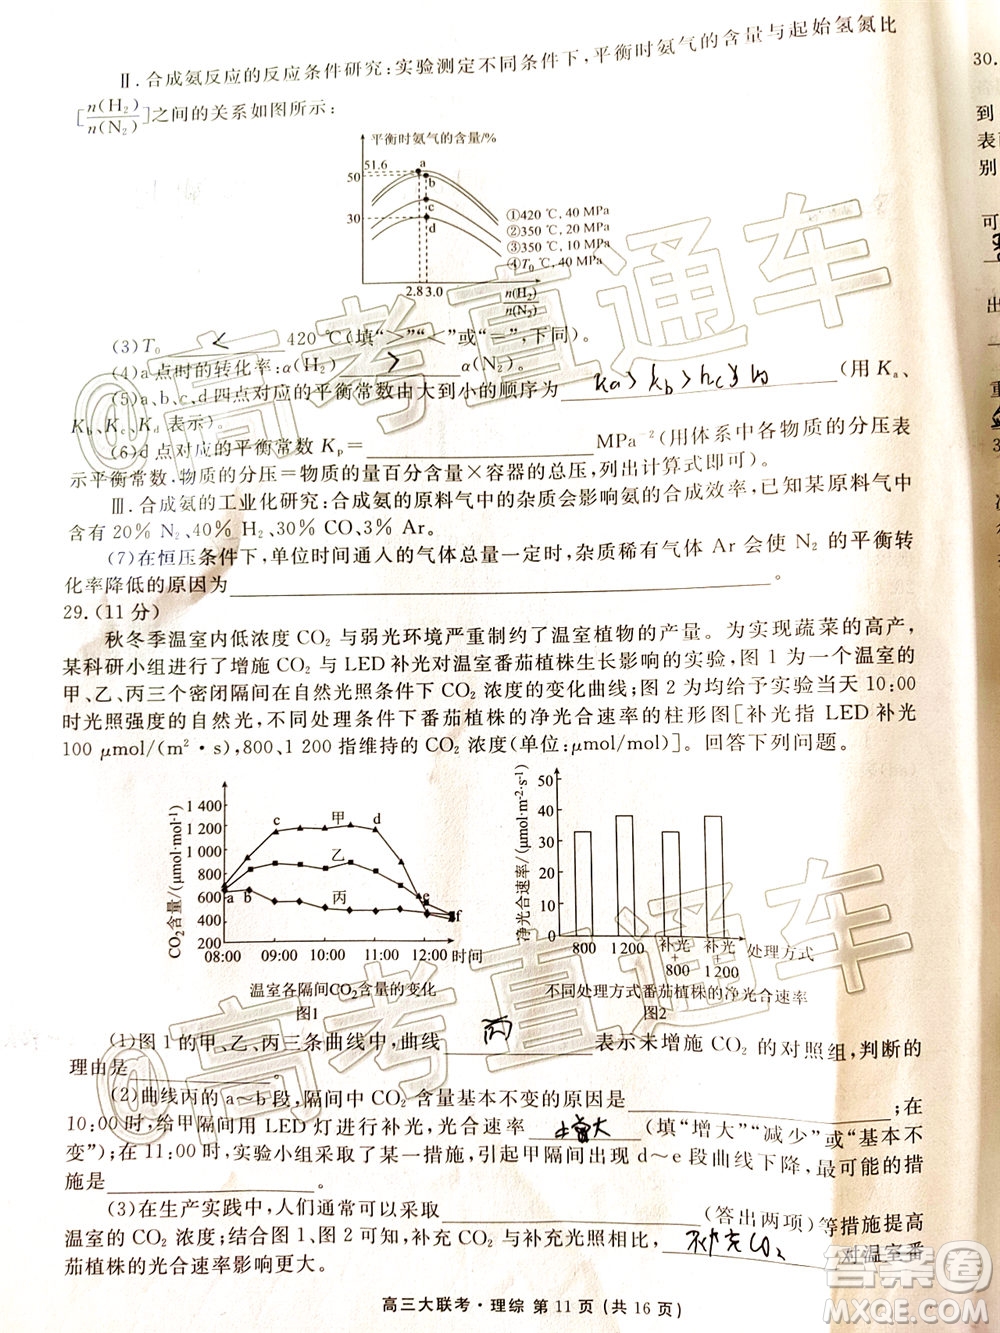 Ⅱ.合成氨反应的反应条件研究:实验测定不同条件下,平衡时氨气的含量与起始氢氮比
[n(H₂)/n(N₂)]之间的关系如图所示:
平衡时氨气的含量/%
51.6
50
30
a
b
c
d
①420 ℃, 40 MPa
②350 ℃, 20 MPa
③350 ℃, 10 MPa
④T₀ ℃, 40 MPa
2.8 3.0
n(H₂)/n(N₂)
(3)T₀ < 420 ℃(填“>”“<”或“=”,下同)。
(4)a点时的转化率:α(H₂) > α(N₂)。
(5)a、b、c、d四点对应的平衡常数由大到小的顺序为 Ka>Kb>Kc> (用 Kₐ、
K_b、K_c、K_d 表示)。
(6)d点对应的平衡常数 Kₚ=________ MPa⁻²(用体系中各物质的分压表
示平衡常数.物质的分压=物质的量百分含量×容器的总压,列出计算式即可)。
Ⅲ.合成氨的工业化研究:合成氨的原料气中的杂质会影响氨的合成效率,已知某原料气中
含有20% N₂、40% H₂、30% CO、3% Ar。
(7)在恒压条件下,单位时间通人的气体总量一定时,杂质稀有气体 Ar 会使 N₂ 的平衡转
化率降低的原因为________。
29.(11 分)
秋冬季温室内低浓度 CO₂ 与弱光环境严重制约了温室植物的产量。为实现蔬菜的高产,
某科研小组进行了增施 CO₂ 与 LED 补光对温室番茄植株生长影响的实验,图 1 为一个温室的
甲、乙、丙三个密闭隔间在自然光照条件下 CO₂ 浓度的变化曲线;图 2 为给予实验当天 10:00
时光照强度的自然光,不同处理条件下番茄植株的净光合速率的柱形图[补光指 LED 补光
100 μmol/(m²·s),800、1 200 指维持的 CO₂ 浓度(单位:μmol/mol)]。回答下列问题。
CO₂含量/(μmol·mol⁻¹)
1 400
1 200
1 000
800
600
400
200
c
甲
d
乙
a b
丙
e
f
08:00 09:00 10:00 11:00 12:00 时间
温室各隔间CO₂含量的变化
图1
净光合速率/(μmol·m⁻²·s⁻¹)
50
40
30
20
10
0
800
1200
补光+800
补光+1200
处理方式
不同处理方式番茄植株的净光合速率
图2
(1)图 1 的甲、乙、丙三条曲线中,曲线 丙 表示未增施 CO₂ 的对照组,判断的
理由是________。
(2)曲线丙的 a～b 段,隔间中 CO₂ 含量基本不变的原因是________;在
10:00时,给甲隔间用 LED 灯进行补光,光合速率 增大 (填“增大”“减少”或“基本不
变”);在 11:00 时,实验小组采取了某一措施,引起甲隔间出现 d～e 段曲线下降,最可能的措
施是________。
(3)在生产实践中,人们通常可以采取________(答出两项)等措施提高
温室的 CO₂ 浓度;结合图 1、图 2 可知,补充 CO₂ 与补充光照相比, 补充CO₂ 对温室番
茄植株的光合速率影响更大。
高三大联考·理综 第 11 页(共 16 页)
30.
到
表
别
可
出
重
@高考直通车
@高考直通车
答案圈
MXQE.COM